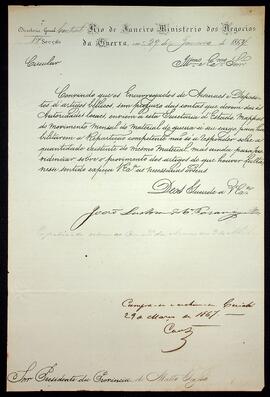 Directoria Geral Central
Rio de Janeiro Ministerio dos Negocios
1ª Secção
da Guerra, em 29 de Janeiro de 1867.
Circular
Illmo Exmo Snr
Convindo que os Encarregados de Arsenaes e Depositos
d'artigos bellicos sem prejuizo das contas que devem dar ás
Autoridades locaes, enviem a esta Secretaria d'Estado, Mappas
do movimento mensal do material de guerra a seu cargo para habilitarem
a Repartição competente não só a respeito sobre a
quantidade existente do mesmo material, mas ainda para providenciar
sobre o provimento dos artigos de que houver falta
nesse sentido expeça V. Exa as necessarias ordens.
Deos Guarde a V. Exa
João Lustosa da Cª Paranaguá
Cumpra-se e archive-se. Cuiabá
29 de Março de 1867.
Snr Presidente da Provincia de Matto Grosso